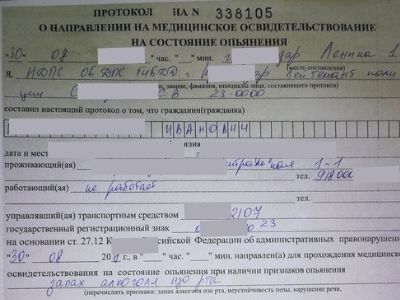 ПРОТОКОЛ НА N 338105
О НАПРАВЛЕНИИ НА МЕДИЦИНСКОЕ ОСВИДЕТЕЛЬСТВОВАНИЕ
НА СОСТОЯНИЕ ОПЬЯНЕНИЯ
"30" 08 " час. " мин. г. дар Ленина 1
(место составления)
Я, ИДПС ОБ ДПС ГИБДД г. р лейтенант поли
ции С С В 23-0000
звание, фамилия, инициалы лица, составившего протокол)
составил настоящий протокол о том, что гражданин(гражданка)
ИВАНОВИЧ
дата и мест
проживающий(ая) поля 1-1
тел. 918 000
работающий(ая) не работает
тел.
управлявший(ая) транспортным средством 2107
государственный регистрационный знак о 23
на основании ст. 27.12 К ссийской Федерации об административных правонаруше
"30" 08 20 г. в " час. " мин. направлен(а) для прохождения медицинско
освидетельствования на состояние опьянения при наличии признаков опьянения
запах алкоголя изо рта
(перечислить признаки: запах алкоголя изо рта, неустойчивость позы, нарушение речи,